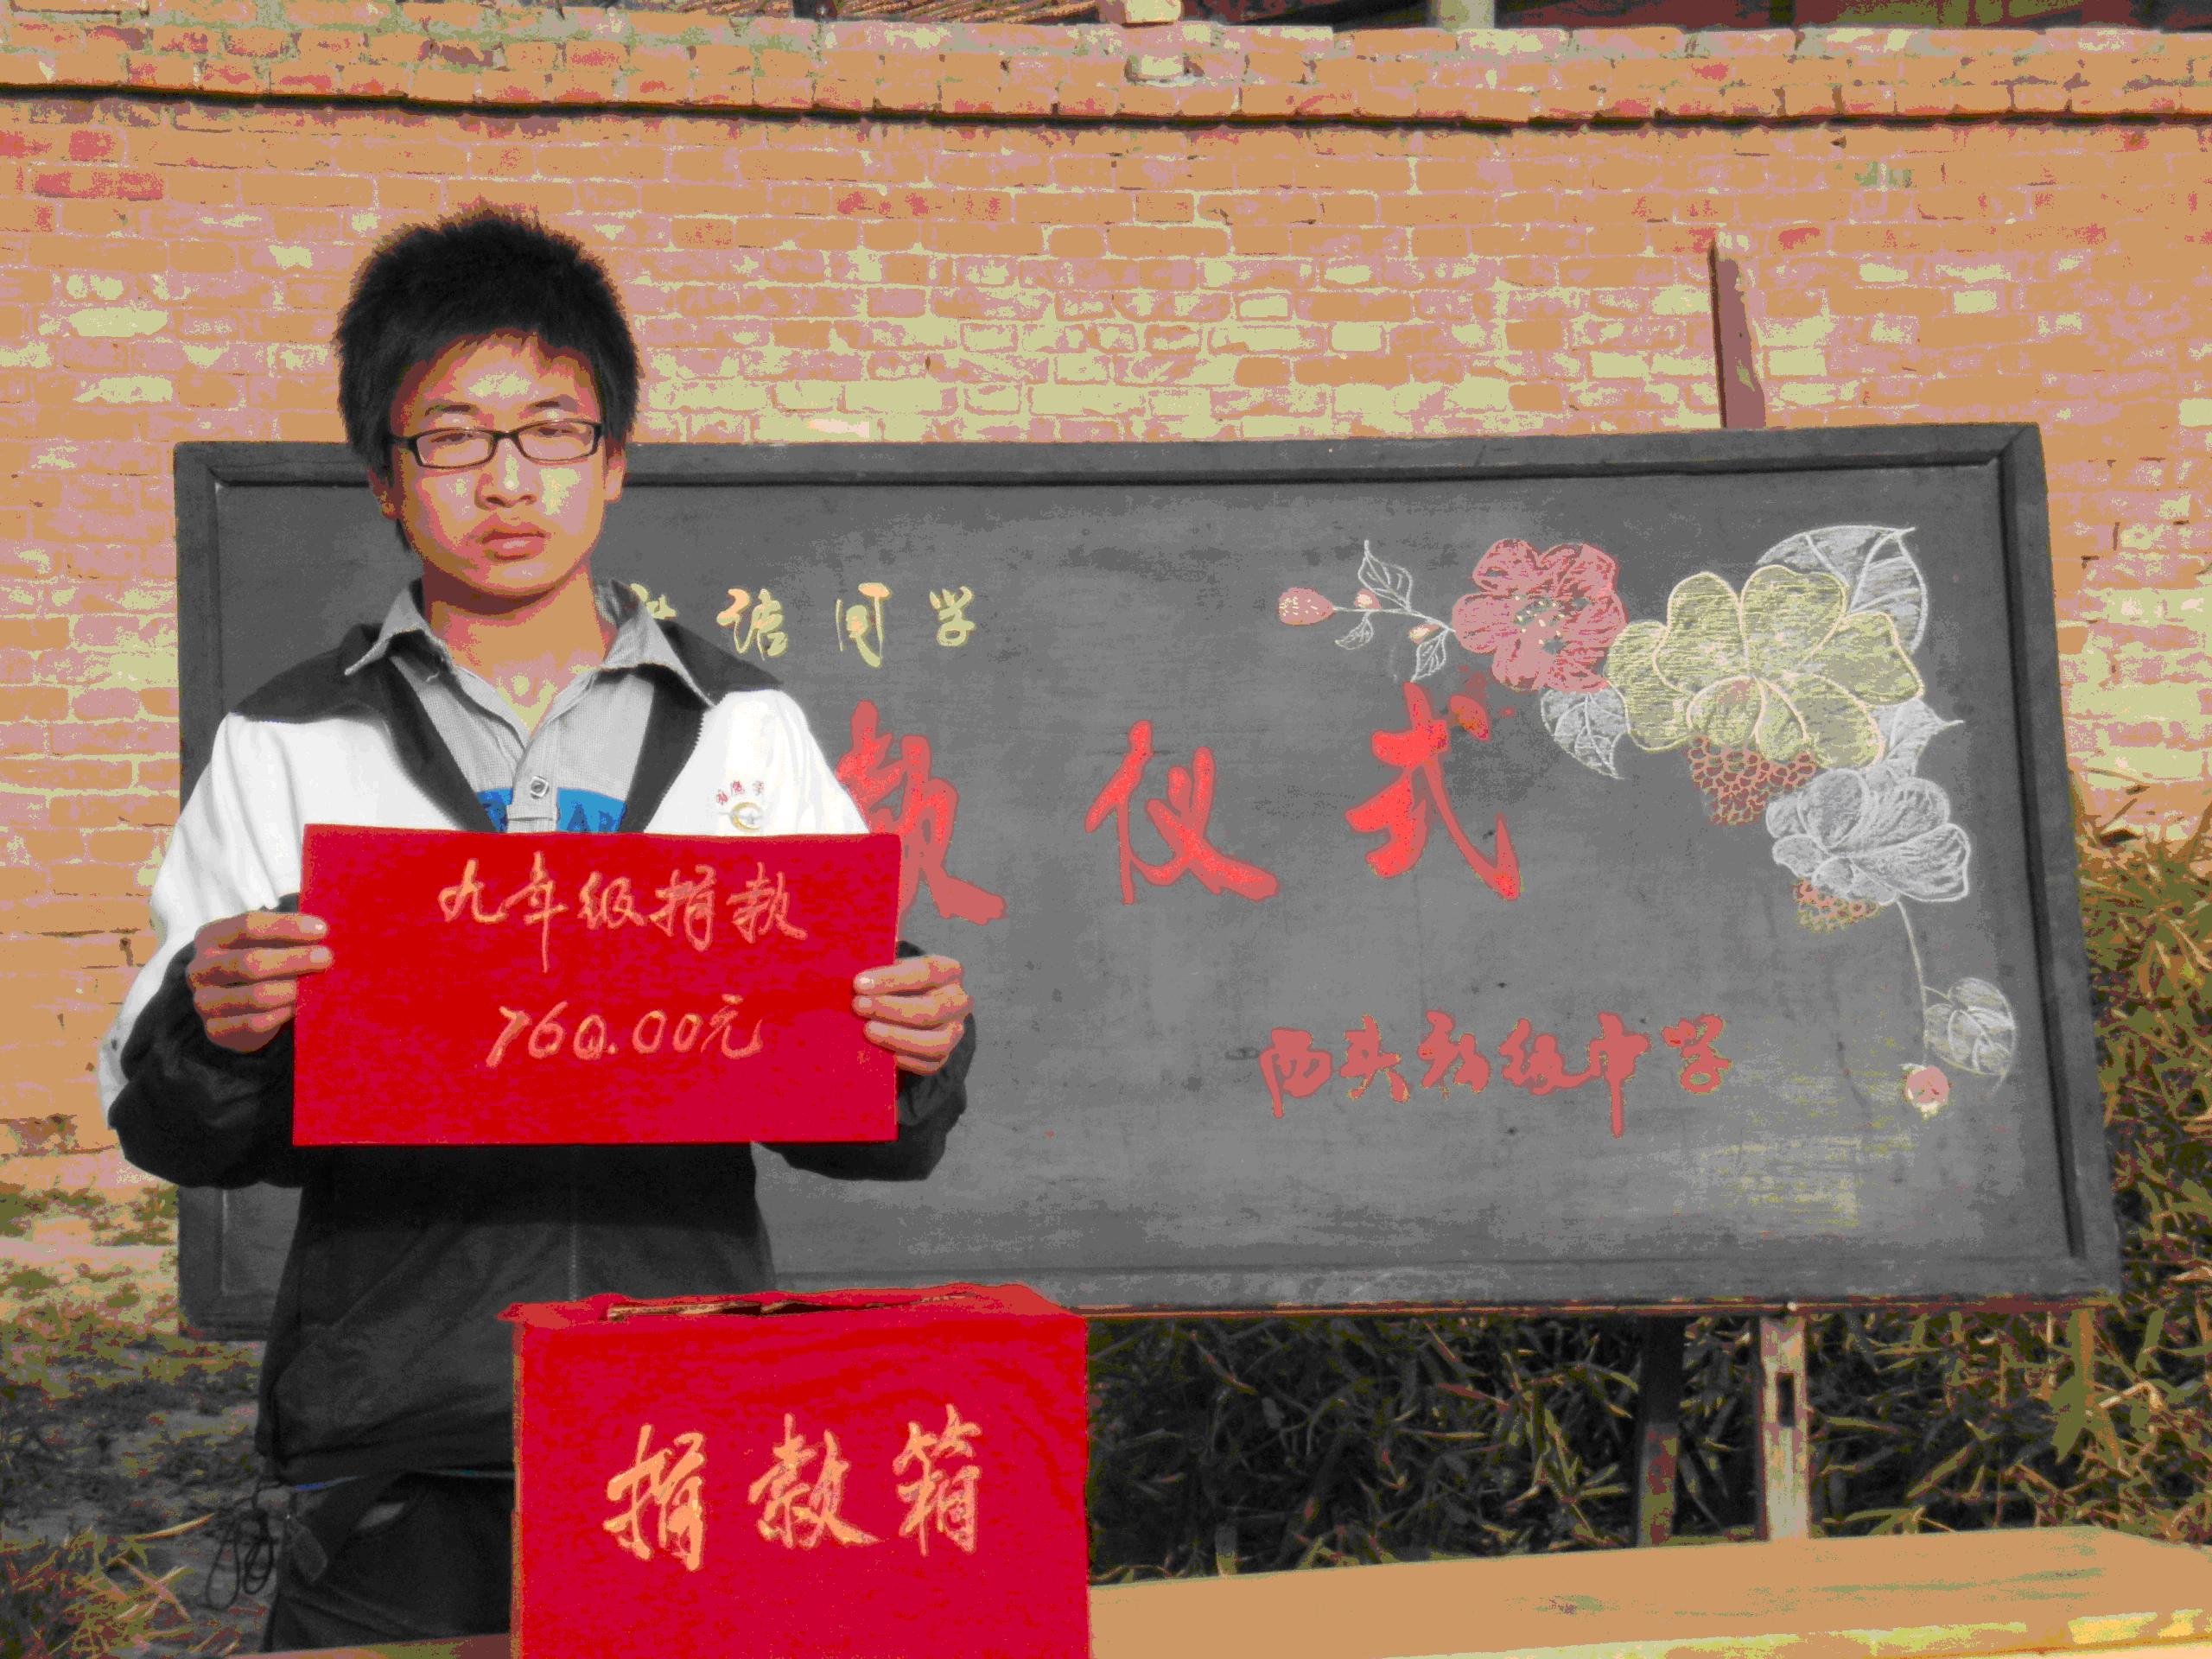 语同学
款仪式
九年级捐款
760.00元
西头初级中学
捐款箱